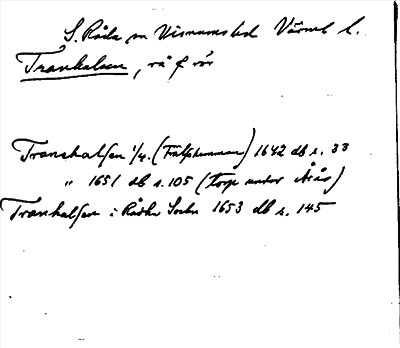 S. Råda sn Visnums hd Värml l.
Tranhalsen, rå f rör
Tranehalsen 1/4. (Frälsehemman) 1642 db s. 33
" 1651 db s. 105 (Torp under Årås)
Tranhalsen i Råda Sochn 1653 db s. 145